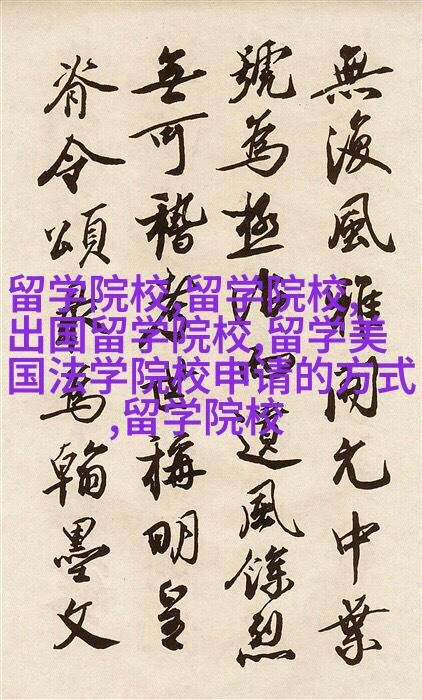 留学院校,留学院校,
出国留学院校,留学美
国法学院校申请的方式
,留学院校
無復風雅開元中葉
號為極遺風餘烈
無可稽考世稱明皇
脊令頌為翰墨文